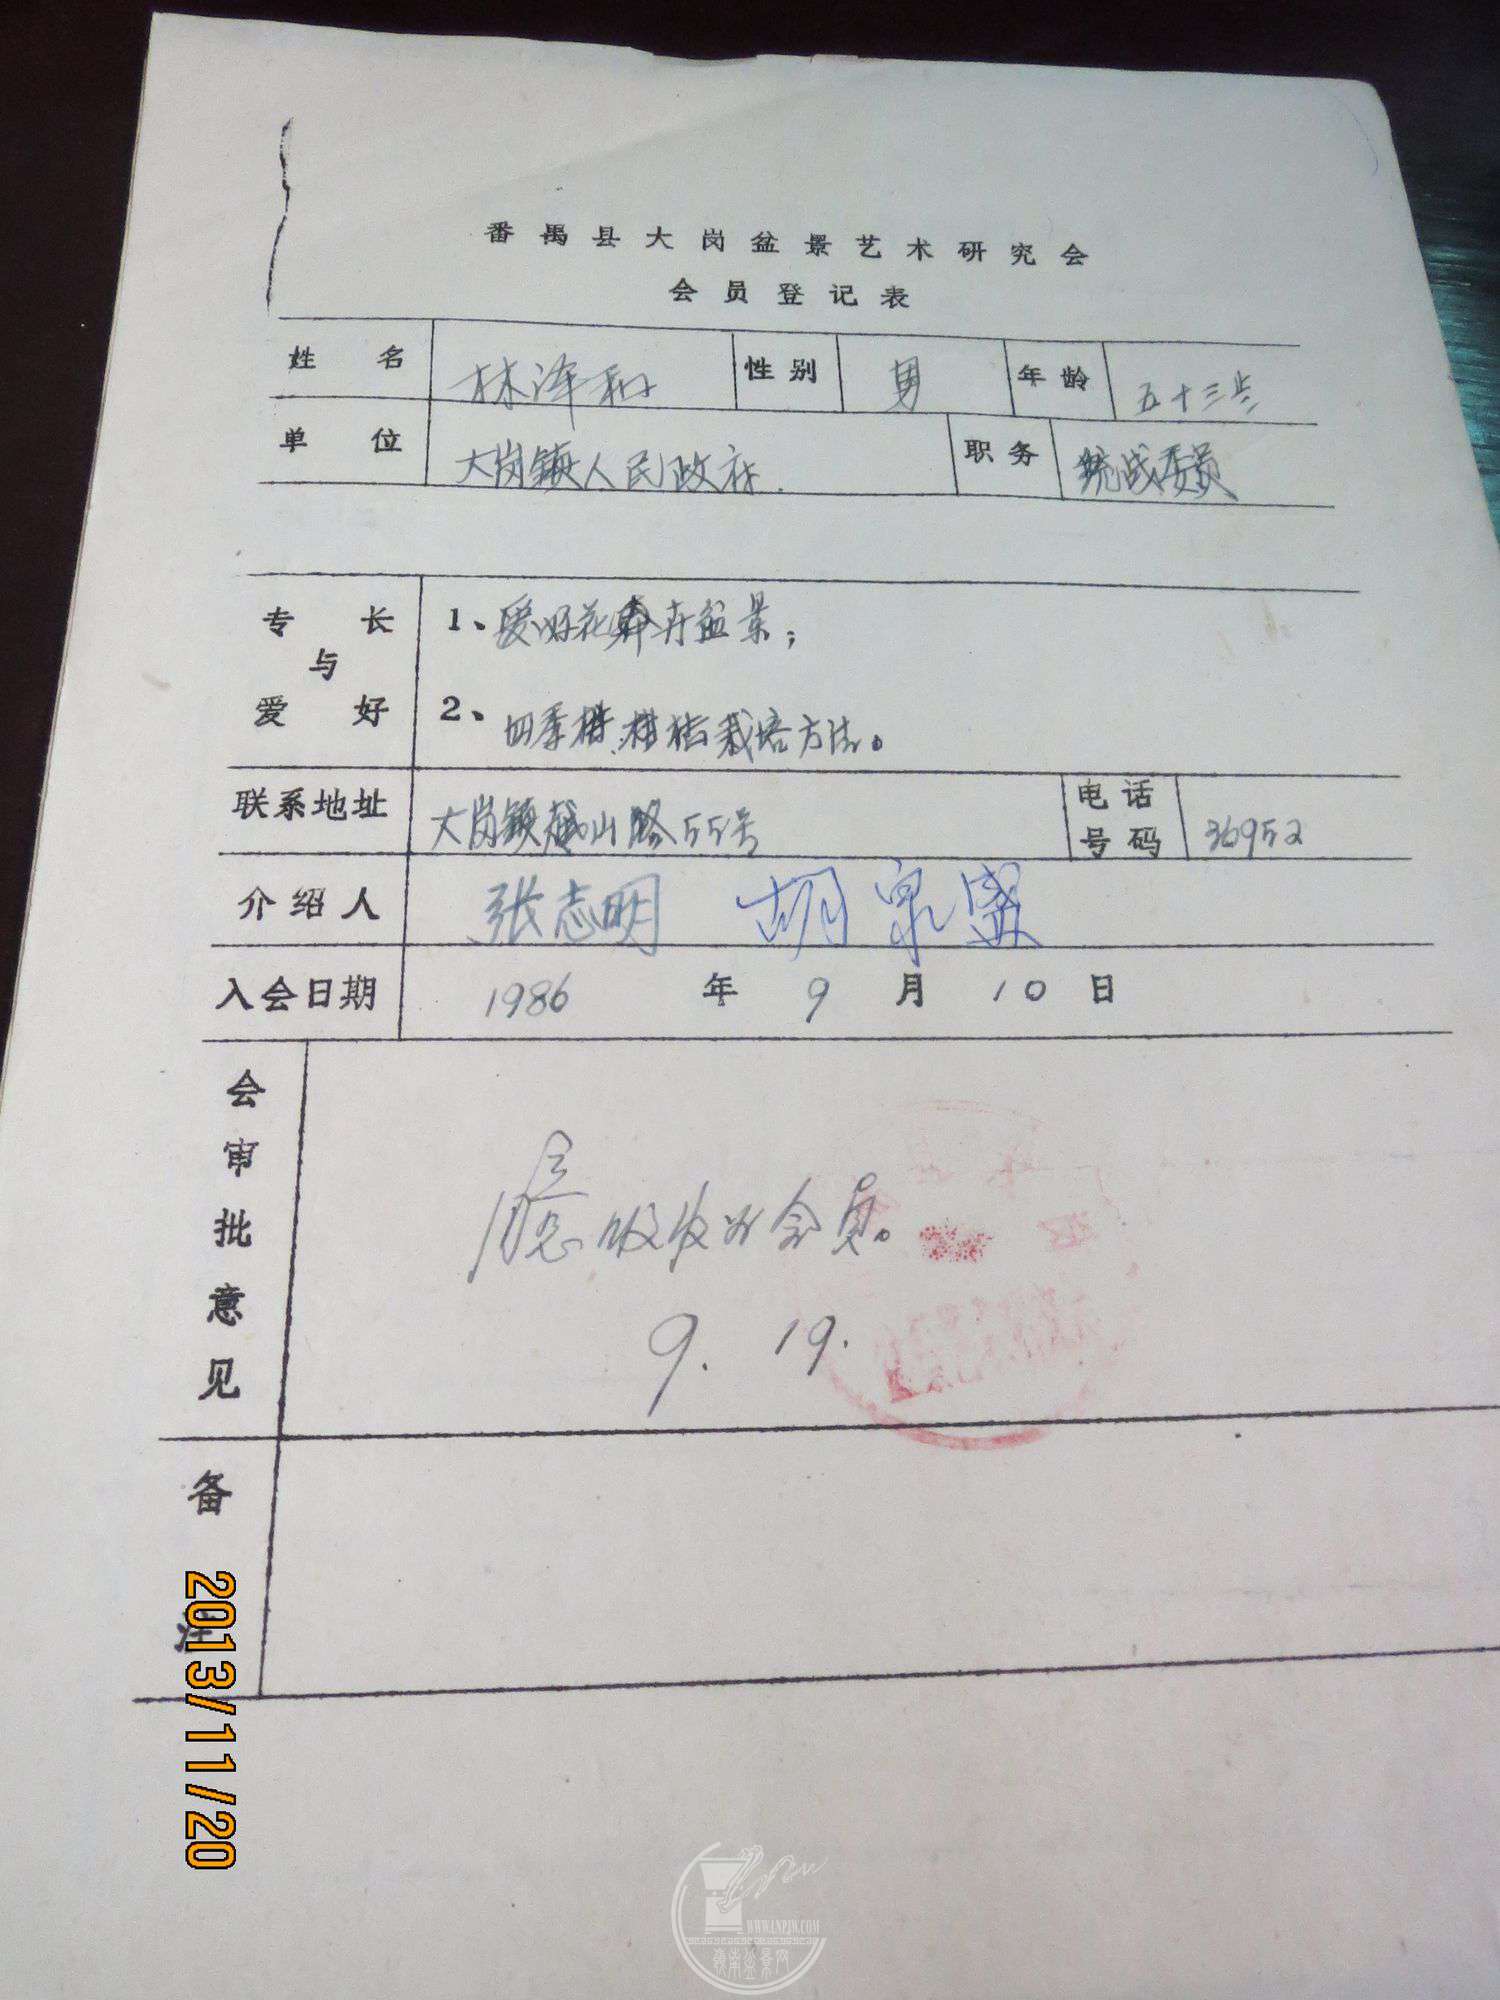 番禺县大岗盆景艺术研究会
会员登记表
姓名 林泽和 性别 男 年龄 五十三岁
单位 大岗镇人民政府. 职务 统战委员
专长与爱好 1、爱好花卉盆景；
2、四季桔.柑桔栽培方法。
联系地址 大岗镇越山路55号 电话号码 36952
介绍人 张志明 胡泉盛
入会日期 1986年9月10日
会审批意见 同意吸收为会员。
9.19.
备注
2013/11/20
WWW.LNPJW.COM
嶺南盆景网